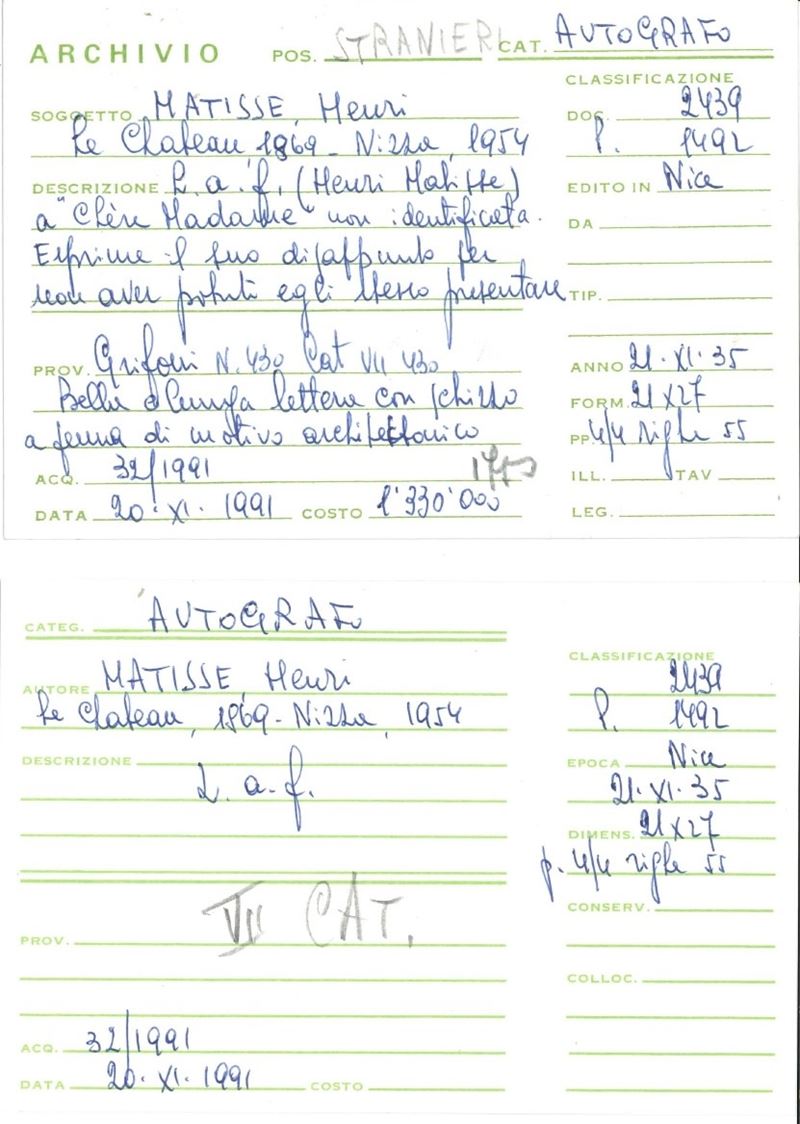 ARCHIVIO POS. STRANIERI CAT. AUTOGRAFO
CLASSIFICAZIONE
SOGGETTO MATISSE, Henri
DOC. 2439
Le Chateau, 1869 - Nizza, 1954
P. 1492
DESCRIZIONE L. a. f. (Henri Matisse)
EDITO IN Nice
a "Chère Madame" non identificata.
DA
Esprime il suo disappunto per
non aver potuto egli stesso presentare
TIP.
PROV. Grifoni N. 430 Cat VII 430
ANNO 21. XI. 35
Bella e lunga lettera con schizzo
FORM. 21x27
a penna di motivo architettonico
PP. 4/4 righe 55
ACQ. 32/1991
ILL. TAV
DATA 20. XI. 1991 COSTO 1'330'000
LEG.
CATEG. AUTOGRAFO
CLASSIFICAZIONE
AUTORE MATISSE, Henri
2439
Le Chateau, 1869 - Nizza, 1954
P. 1492
DESCRIZIONE
EPOCA Nice
L. a. f.
21. XI. 35
DIMENS. 21x27
p. 4/4 righe 55
VII CAT.
CONSERV.
PROV.
COLLOC.
ACQ. 32/1991
DATA 20. XI. 1991 COSTO